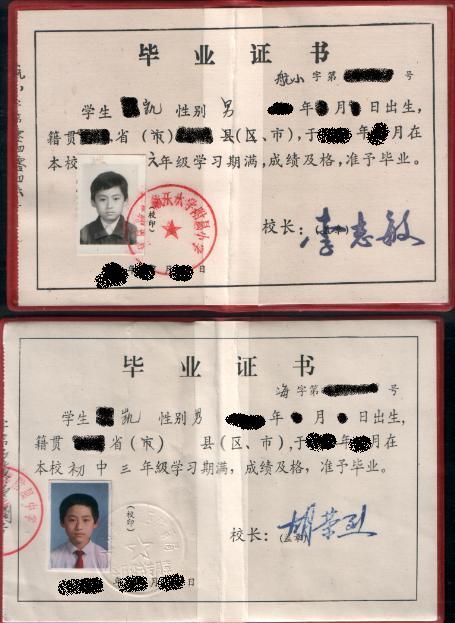 毕业证书
航小字第 号
学生 凯 性别 男 年 月 日出生，
籍贯 省（市） 县（区、市），于 年 月在
本校 六年级学习期满，成绩及格，准予毕业。
（校印）
校长：李志敏
年 月 日
毕业证书
海字第 号
学生 凯 性别男 年 月 日出生，
籍贯 省（市） 县（区、市），于 年 月在
本校初中三年级学习期满，成绩及格，准予毕业。
（校印）
校长：胡荣
年 月 日